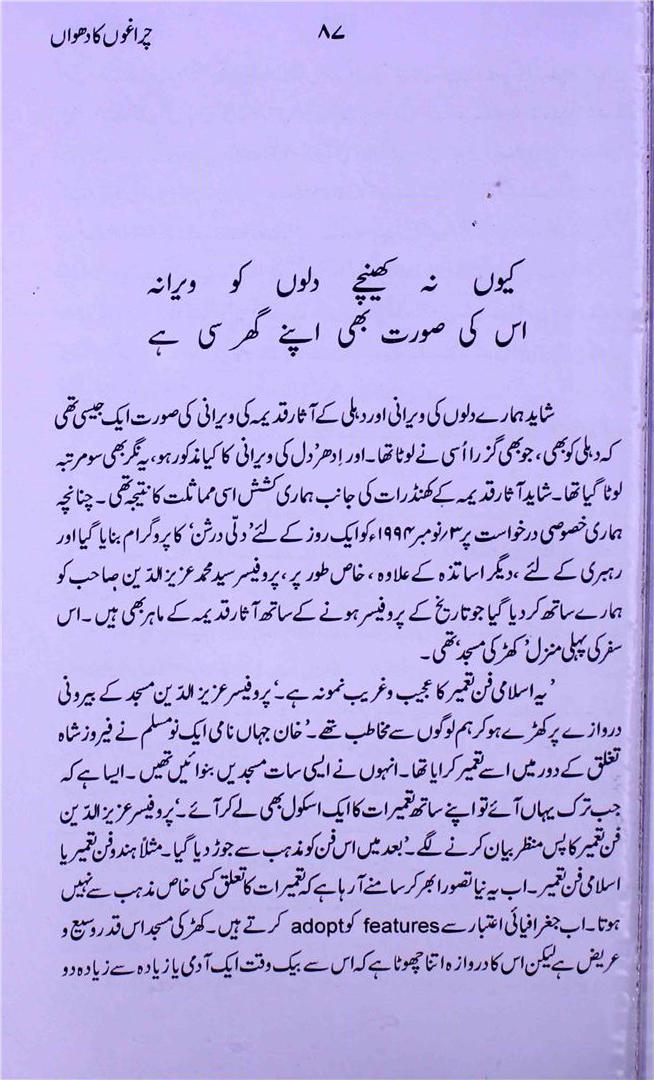 چراغوں کا دھواں
۸۷
کیوں نہ کھینچے دلوں کو ویرانہ
اس کی صورت بھی اپنے گھر سی ہے
شاید ہمارے دلوں کی ویرانی اور دہلی کے آثارِ قدیمہ کی ویرانی کی صورت ایک جیسی تھی
کہ دہلی کو بھی، جو بھی گزرا اُسی نے لوٹا تھا۔ اور اِدھر ’دل کی ویرانی کا کیا مذکور ہو، یہ نگر بھی سو مرتبہ
لوٹا گیا تھا۔ شاید آثارِ قدیمہ کے کھنڈرات کی جانب ہماری کشش اسی مماثلت کا نتیجہ تھی۔ چنانچہ
ہماری خصوصی درخواست پر ۳/نومبر ۱۹۹۴ء کو ایک روز کے لئے ’دلّی درشن‘ کا پروگرام بنایا گیا اور
رہبری کے لئے، دیگر اساتذہ کے علاوہ، خاص طور پر، پروفیسر سید محمد عزیز الدّین صاحب کو
ہمارے ساتھ کر دیا گیا جو تاریخ کے پروفیسر ہونے کے ساتھ آثارِ قدیمہ کے ماہر بھی ہیں۔ اس
سفر کی پہلی منزل ’کھڑکی مسجد‘ تھی۔
’یہ اسلامی فن تعمیر کا عجیب و غریب نمونہ ہے۔‘ پروفیسر عزیز الدّین مسجد کے بیرونی
دروازے پر کھڑے ہو کر ہم لوگوں سے مخاطب تھے۔ ’خان جہاں نامی ایک نو مسلم نے فیروز شاہ
تغلق کے دور میں اسے تعمیر کرایا تھا۔ انہوں نے ایسی سات مسجدیں بنوائیں تھیں۔ ایسا ہے کہ
جب ترک یہاں آئے تو اپنے ساتھ تعمیرات کا ایک اسکول بھی لے کر آئے۔‘ پروفیسر عزیز الدّین
فن تعمیر کا پس منظر بیان کرنے لگے۔ ’بعد میں اس فن کو مذہب سے جوڑ دیا گیا۔ مثلاً ہندو فن تعمیر یا
اسلامی فن تعمیر۔ اب یہ نیا تصور ابھر کر سامنے آ رہا ہے کہ تعمیرات کا تعلق کسی خاص مذہب سے نہیں
ہوتا۔ اب جغرافیائی اعتبار سے features کو adopt کرتے ہیں۔ کھڑکی مسجد اس قدر وسیع و
عریض ہے لیکن اس کا دروازہ اتنا چھوٹا ہے کہ اس سے بیک وقت ایک آدمی یا زیادہ سے زیادہ دو